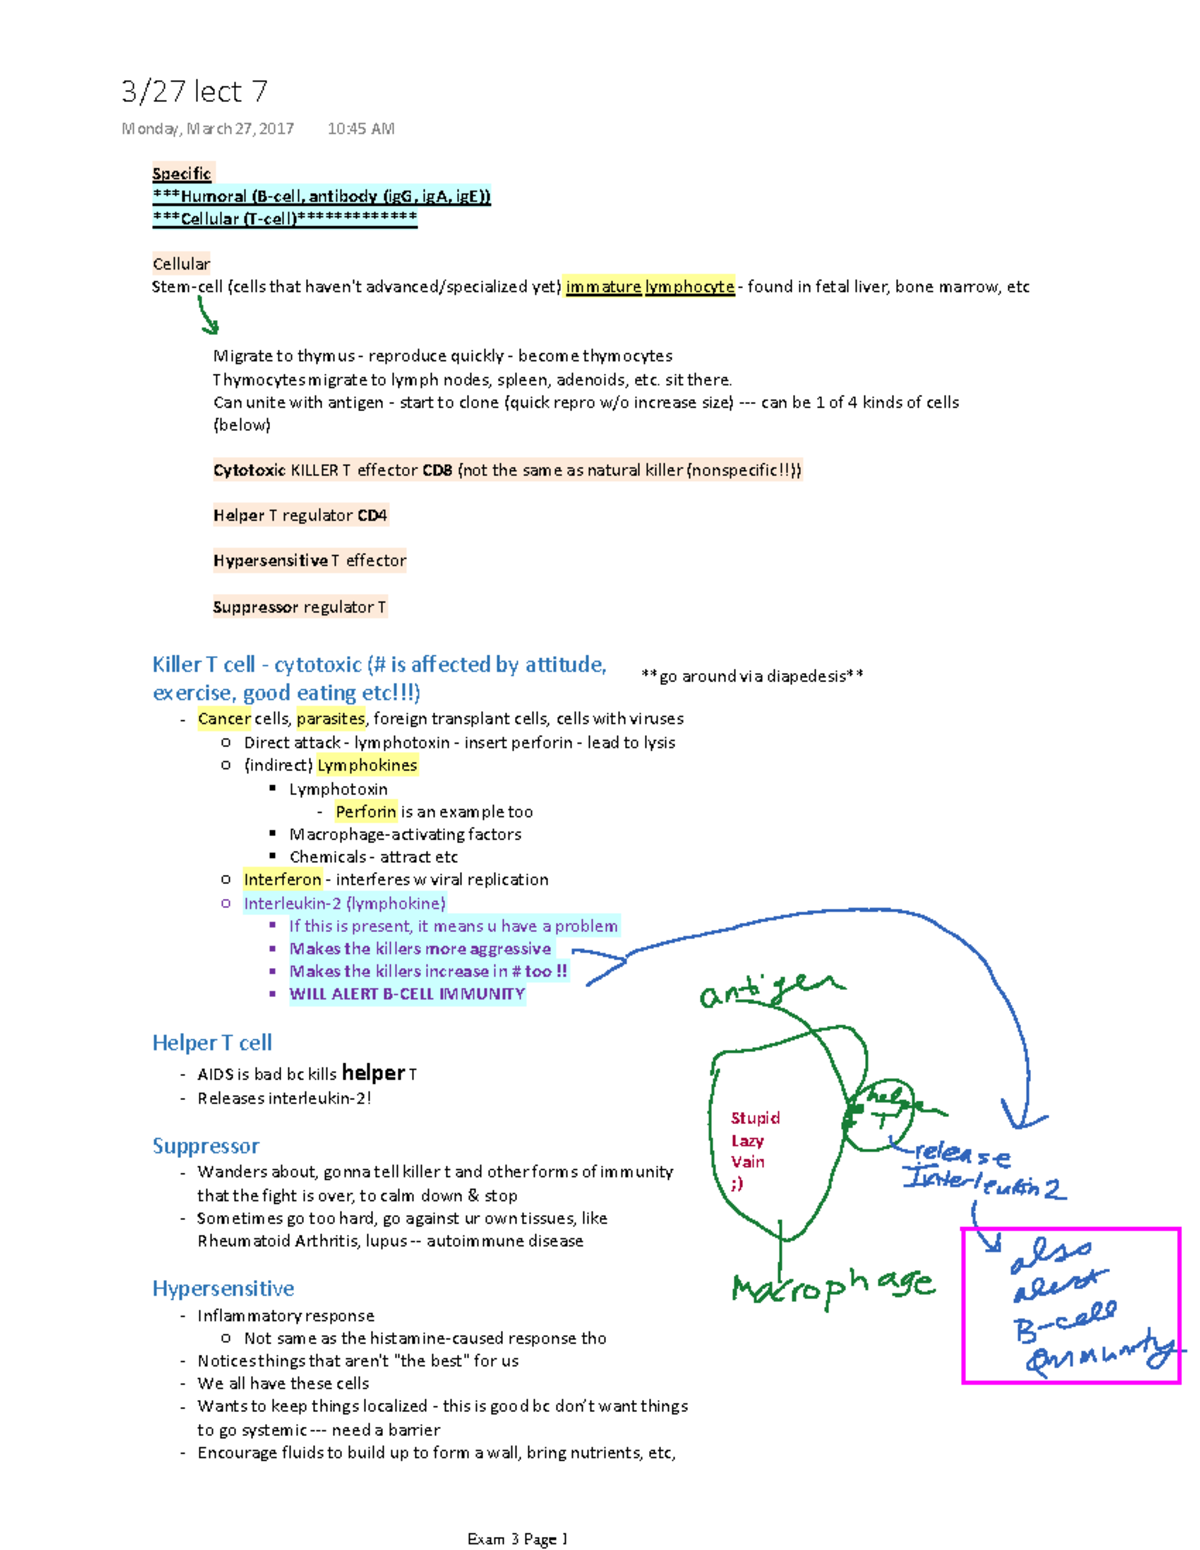 3/27 lect 7
Monday, March 27, 2017 10:45 AM
Specific
***Humoral (B-cell, antibody (igG, igA, igE))
***Cellular (T-cell)*************
Cellular
Stem-cell (cells that haven't advanced/specialized yet) immature lymphocyte - found in fetal liver, bone marrow, etc
Migrate to thymus - reproduce quickly - become thymocytes
Thymocytes migrate to lymph nodes, spleen, adenoids, etc. sit there.
Can unite with antigen - start to clone (quick repro w/o increase size) --- can be 1 of 4 kinds of cells
(below)
Cytotoxic KILLER T effector CD8 (not the same as natural killer (nonspecific!!))
Helper T regulator CD4
Hypersensitive T effector
Suppressor regulator T
Killer T cell - cytotoxic (# is affected by attitude,
exercise, good eating etc!!!)
**go around via diapedesis**
- Cancer cells, parasites, foreign transplant cells, cells with viruses
o Direct attack - lymphotoxin - insert perforin - lead to lysis
o (indirect) Lymphokines
▪ Lymphotoxin
- Perforin is an example too
▪ Macrophage-activating factors
▪ Chemicals - attract etc
o Interferon - interferes w viral replication
o Interleukin-2 (lymphokine)
▪ If this is present, it means u have a problem
▪ Makes the killers more aggressive
▪ Makes the killers increase in # too !!
▪ WILL ALERT B-CELL IMMUNITY
antigen
Helper T cell
- AIDS is bad bc kills helper T
- Releases interleukin-2!
helper
T
Stupid
Lazy
Vain
;)
release
Interleukin 2
Suppressor
- Wanders about, gonna tell killer t and other forms of immunity
that the fight is over, to calm down & stop
- Sometimes go too hard, go against ur own tissues, like
Rheumatoid Arthritis, lupus -- autoimmune disease
Macrophage
also
alert
B-cell
immunity
Hypersensitive
- Inflammatory response
o Not same as the histamine-caused response tho
- Notices things that aren't "the best" for us
- We all have these cells
- Wants to keep things localized - this is good bc don't want things
to go systemic --- need a barrier
- Encourage fluids to build up to form a wall, bring nutrients, etc,
Exam 3 Page 1